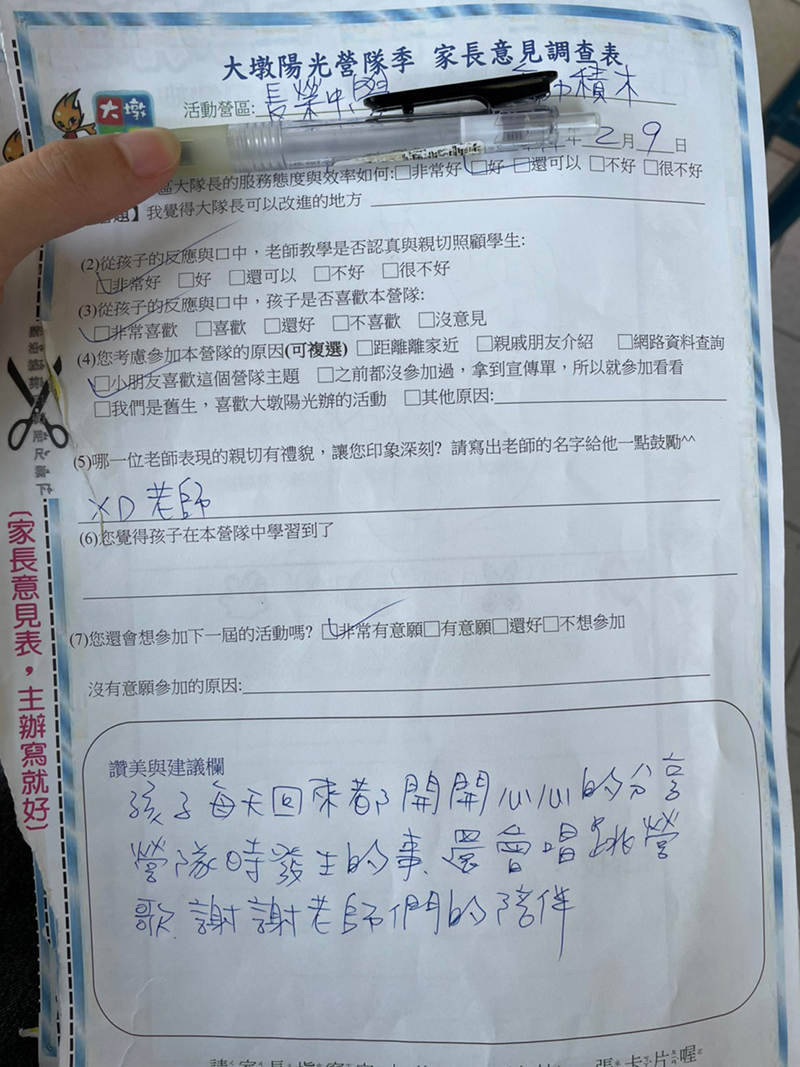 大墩陽光營隊季 家長意見調查表
大墩
活動營區: 長榮中學 積木
2月9日
區大隊長的服務態度與效率如何:□非常好 □好 □還可以 □不好 □很不好
題】我覺得大隊長可以改進的地方
(2)從孩子的反應與口中，老師教學是否認真與親切照顧學生:
□非常好 □好 □還可以 □不好 □很不好
(3)從孩子的反應與口中，孩子是否喜歡本營隊:
□非常喜歡 □喜歡 □還好 □不喜歡 □沒意見
(4)您考慮參加本營隊的原因(可複選) □距離離家近 □親戚朋友介紹 □網路資料查詢
□小朋友喜歡這個營隊主題 □之前都沒參加過，拿到宣傳單，所以就參加看看
□我們是舊生，喜歡大墩陽光辦的活動 □其他原因:
(5)哪一位老師表現的親切有禮貌，讓您印象深刻? 請寫出老師的名字給他一點鼓勵^^
XD老師
(6)您覺得孩子在本營隊中學習到了
(7)您還會想參加下一屆的活動嗎? □非常有意願□有意願□還好□不想參加
沒有意願參加的原因:
讚美與建議欄
孩子每天回來都開開心心的分享
營隊時發生的事、還會唱跳營
歌 謝謝老師們的陪伴
張卡片喔
〔家長意見表，主辦寫就好〕